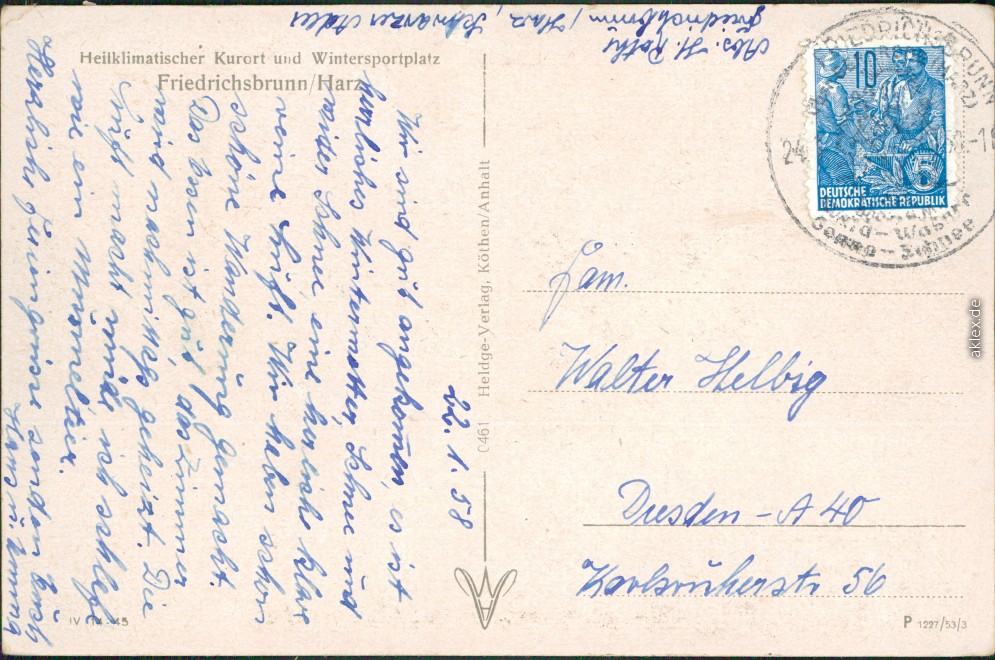 Heilklimatischer Kurort und Wintersportplatz
Friedrichsbrunn/Harz
Abs. H. Rothe
Friedrichsbrunn / Harz
Schwarzer Adler
22.1.58
Wir sind gut angekommen, es ist
herrliches Winterwetter, Schnee und
wieder Schnee, eine herliche klare
reine Luft. Wir haben schon
schöne Wanderung gemacht.
Das Essen ist gut das Zimmer
wird nachmittags geheizt. Die
Luft macht müde ich schlafe
wie ein Murmeltier.
Herzliche Feriengrüsse senden Euch
Hans u.
Heldge-Verlag, Köthen/Anhalt
0461
IV 14-45
P 1227/53/3
FRIEDRICHSBRUNN
(HARZ)
24
58-18
Sonne - Schnee
10
5
DEUTSCHE
DEMOKRATISCHE REPUBLIK
Fam.
Walter Helbig
Dresden - A 40
Karlsruherstr 56
aklex.de